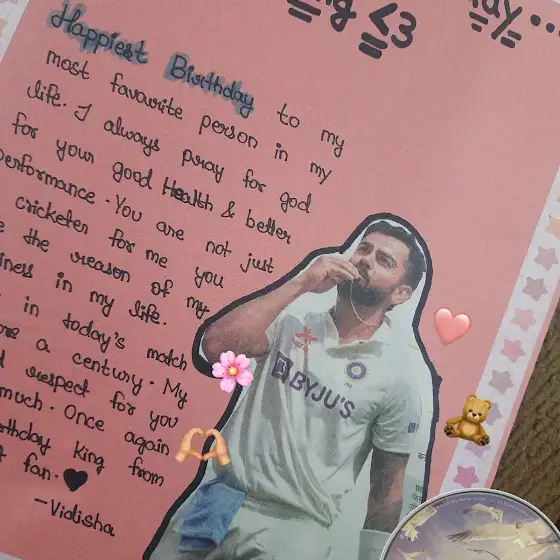 ng <3
day ...
Happiest Birthday to my
most favourite person in my
life. I always pray for god
for your good Health & better
performance. You are not just
cricketer for me you
the reason of my
iness in my life.
in today's match
a century. My
respect for you
much. Once again
rthday King from
fan. ♥
- Vidisha
BYJU'S